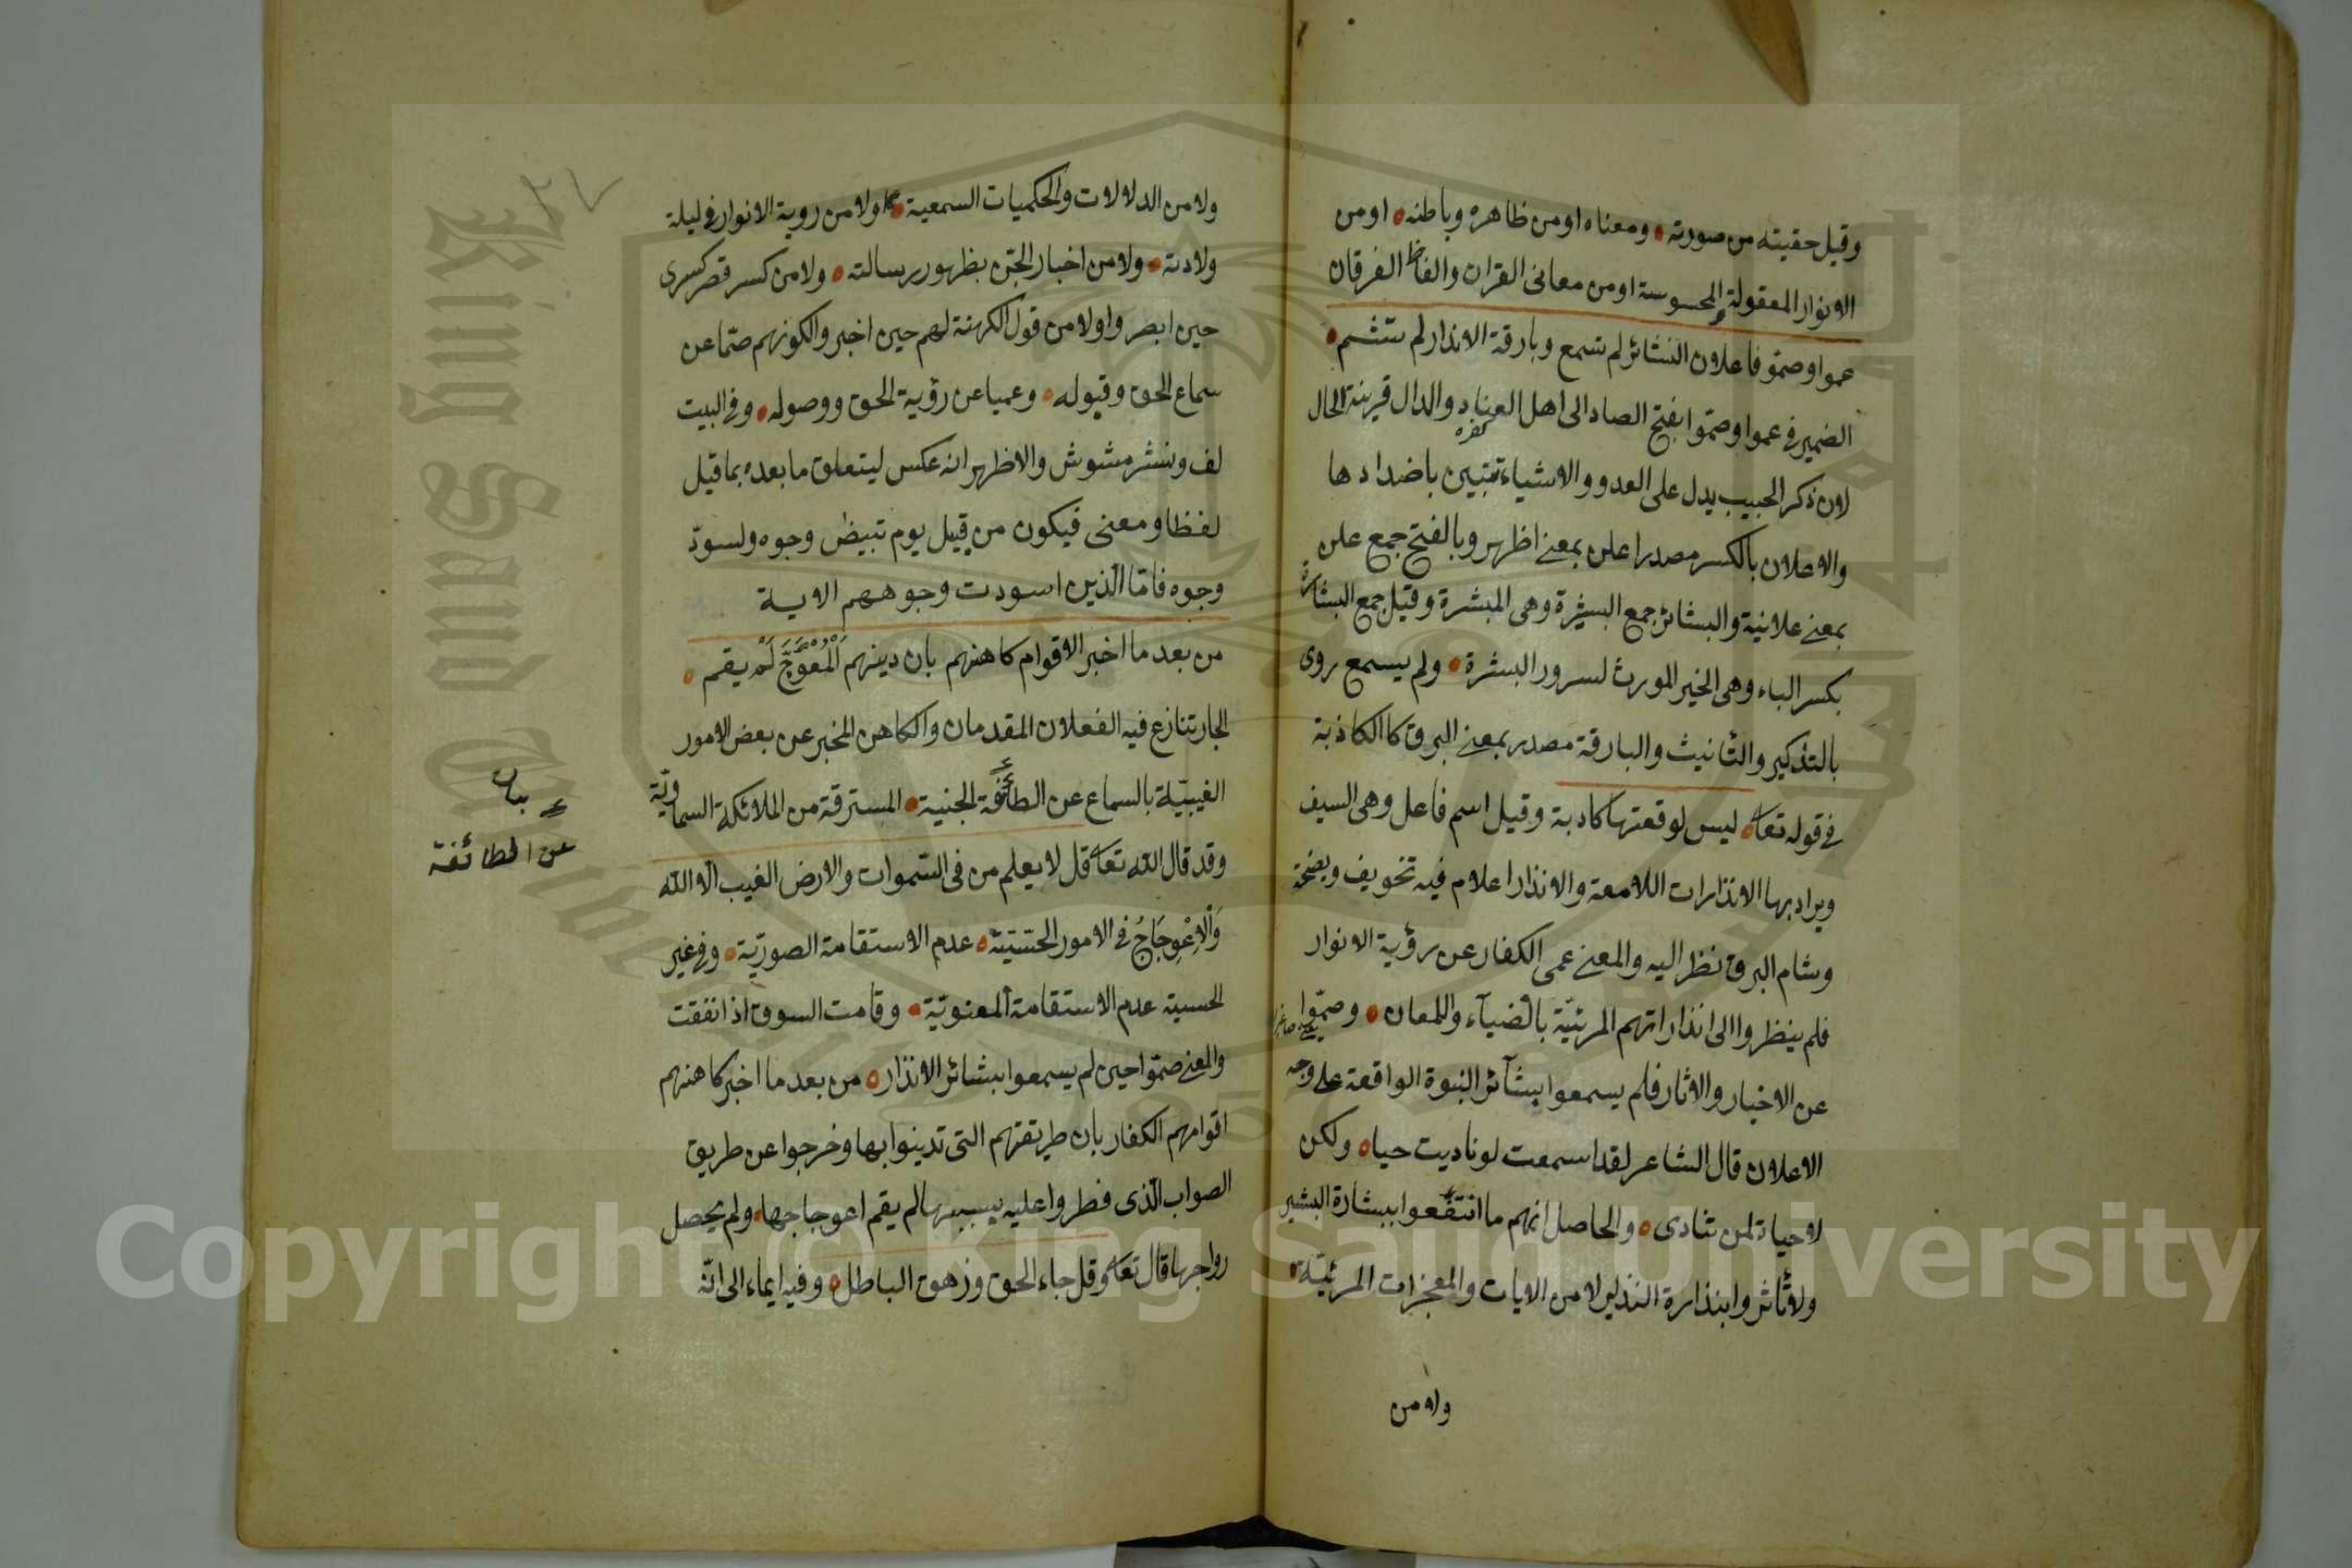 وقيل حقيته من صورته ومعناه اومن ظاهره وباطنه اومن
الانوار المعقولة والمحسوسة اومن معانى القران والفاظ الفرقان
عموا وصموا فاعلان البشائر لم تسمع وبارقة الانذار لم تشم
الضمير فى عموا وصموا بفتح الصاد الى اهل العناد والدال قرينة الحال
كفره
لان ذكر الحبيب يدل على العدو والاشياء تتبين باضدادها
والاعلان بالكسر مصدر اعلن بمعنى اظهر وبالفتح جمع علن
بمعنى علانية والبشائر جمع البشيرة وهى المبشرة وقيل جمع البشارة
بكسر الباء وهى الخير المورث لسرور البشرة ولم يسمع روى
بالتذكير والتانيث والبارقة مصدر بمعنى البرق كالكاذبة
فى قوله تعا ليس لوقعتها كاذبة وقيل اسم فاعل وهى السيف
ويراد بها الانذارات اللامعة والانذار اعلام فيه تخويف
وشام البرق نظر اليه والمعنى عمى الكفار عن رؤية الانوار
فلم ينظروا الى انذاراتهم المرئيّة بالضياء واللمعان وصمّوا
عن الاخبار والاثار فلم يسمعوا ببشآئر النبوة الواقعة على وجه
الاعلان قال الشاعر لقد اسمعت لو ناديت حيا ولكن
لا حياة لمن تنادى والحاصل انهم ما انتفعوا ببشارة البشير
ولا تأثروا بنذارة النذير لا من الايات والمعجزات المرئيّة
ولا من
ولا من الدلالات والحكميات السمعية ولا من روية الانوار فى ليلة
ولادته ولا من اخبار الجن بظهور رسالته ولا من كسر قصر كسرى
حين ابصروا ولا من قول الكهنة لهم حين اخبروا لكونهم صمّا عن
سماع الحق وقبوله وعميا عن رؤية الحق ووصوله وفى البيت
لف ونشر مشوش والاظهر انه عكس ليتعلق ما بعده بما قيل
لفظا ومعنى فيكون من قبيل يوم تبيض وجوه وتسودّ
وجوه فامّا الذين اسودت وجوههم الاية
من بعد ما اخبر الاقوام كاهنهم بان دينهم اَلْمُعْوَجَّ لَمْ يقم
الجار تنازع فيه الفعلان المقدمان والكاهن المخبر عن بعض الامور
الغيبيّة بالسماع عن الطائفة الجنية المسترقة من الملائكة السماويّة
وقد قال الله تعا قل لا يعلم من فى السّموات والارض الغيب الا الله
وَالْاِعْوِجَاجُ فى الامور الحسّيّة عدم الاستقامة الصوريّة وفى غير
الحسية عدم الاستقامة المعنويّة وقامت السوق اذا نفقت
والمعنى صمّوا حين لم يسمعوا ببشائر الانذار من بعد ما اخبر كاهنهم
اقوامهم الكفار بان طريقتهم التى تدينوا بها وخرجوا عن طريق
الصواب الّذى فطروا عليه بسببها لم يقم اعوجاجها ولم يحصل
رواجها قال تعا وقل جاء الحق وزهق الباطل وفيه ايماء الى انّه
بيان
عن الطائفة
٢٧
King Saud University
Copyright © King Saud University